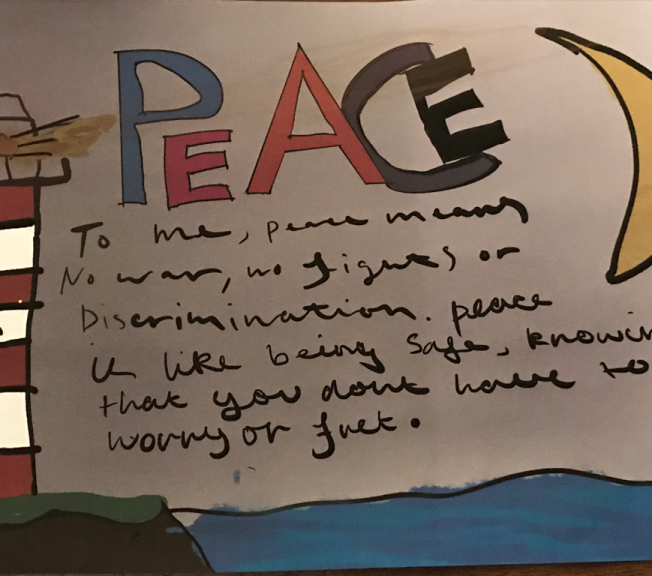 PEACE
To me, peace means
No war, no fights or
Discrimination. peace
is like being safe, knowin
that you dont have to
worry or fret.